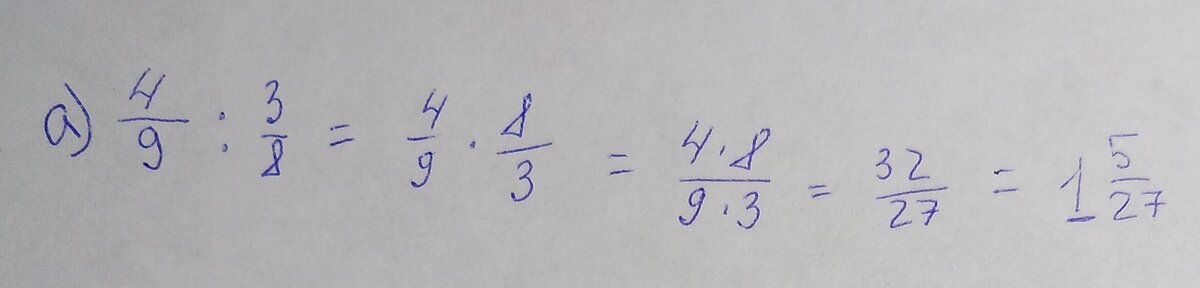 а) 4/9 : 3/8 = 4/9 · 8/3 = 4·8/9·3 = 32/27 = 1 5/27